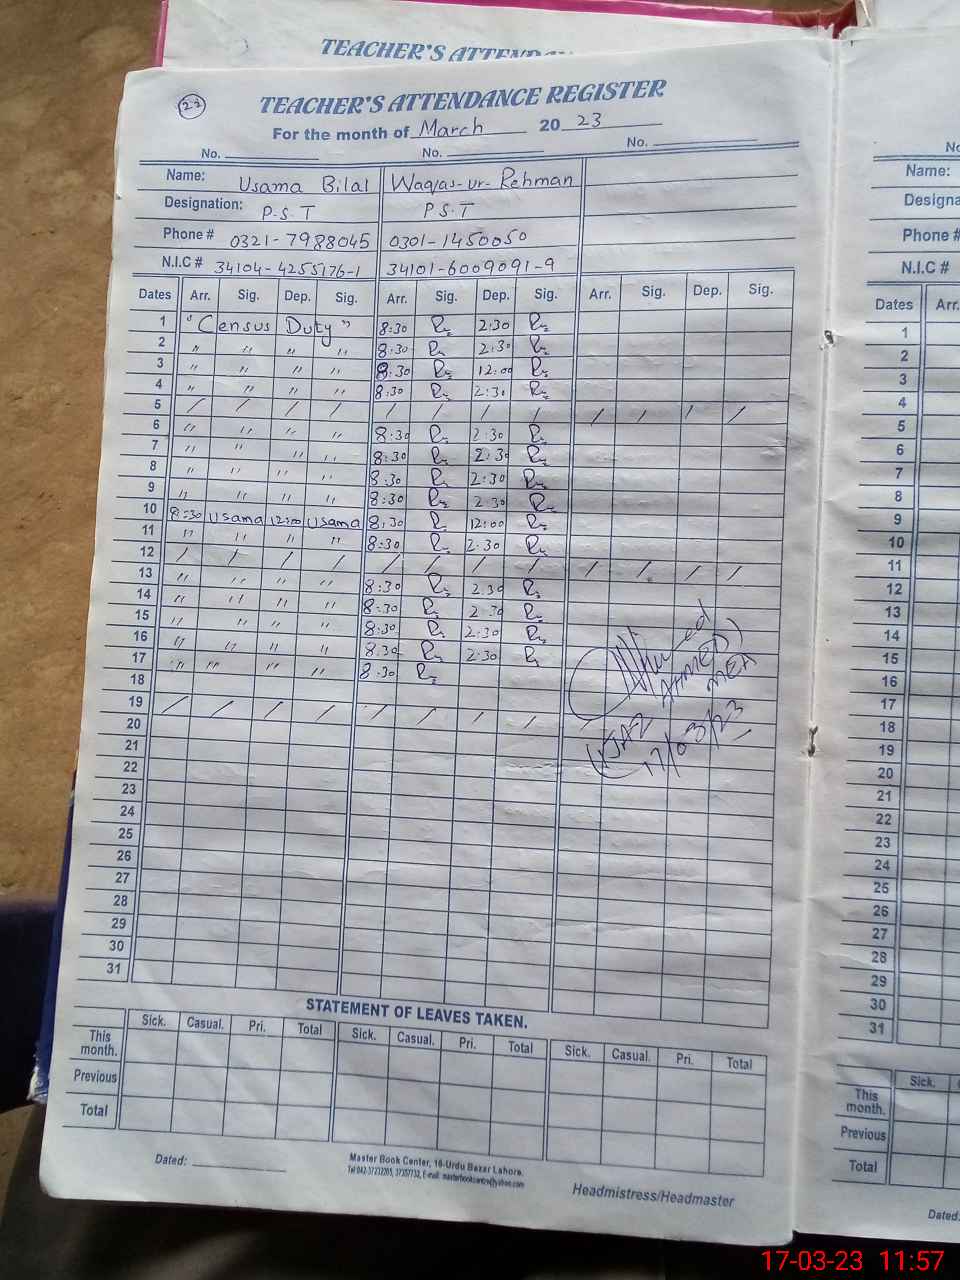 TEACHER'S ATTENDAN
22
TEACHER'S ATTENDANCE REGISTER
For the month of March 2023
No. No. No.
Name: Usama Bilal Waqas-ur-Rehman
Designation: P.S.T P.S.T
Phone # 0321-7988045 0301-1450050
N.I.C # 34104-4255176-1 34101-6009091-9
Dates Arr. Sig. Dep. Sig. Arr. Sig. Dep. Sig. Arr. Sig. Dep. Sig.
1 "Census Duty" 8:30 2:30
2 " " " " 8:30 2:30
3 " " " " 8:30 12:00
4 " " " " 8:30 2:30
5 / / / / / / / / / / / /
6 " " " " 8:30 2:30
7 " " " " 8:30 2:30
8 " " " " 8:30 2:30
9 " " " " 8:30 2:30
10 8:30 Usama 12:00 Usama 8:30 12:00
11 " " " " 8:30 2:30
12 / / / / / / / / / / / /
13 " " " " 8:30 2:30
14 " " " " 8:30 2:30
15 " " " " 8:30 2:30
16 " " " " 8:30 2:30
17 " " " " 8:30
18
19 / / / / / / / /
20
21
22
23
24
25
26
27
28
29
30
31
AHMED)
MEA
(IJAZ
17/03/23
STATEMENT OF LEAVES TAKEN.
Sick. Casual. Pri. Total Sick. Casual. Pri. Total Sick. Casual. Pri. Total
This month.
Previous
Total
Dated:
Master Book Center, 16-Urdu Bazar Lahore.
Headmistress/Headmaster
No
Name:
Designa
Phone #
N.I.C #
Dates Arr.
1
2
3
4
5
6
7
8
9
10
11
12
13
14
15
16
17
18
19
20
21
22
23
24
25
26
27
28
29
30
31
Sick.
This month.
Previous
Total
Dated:
17-03-23 11:57